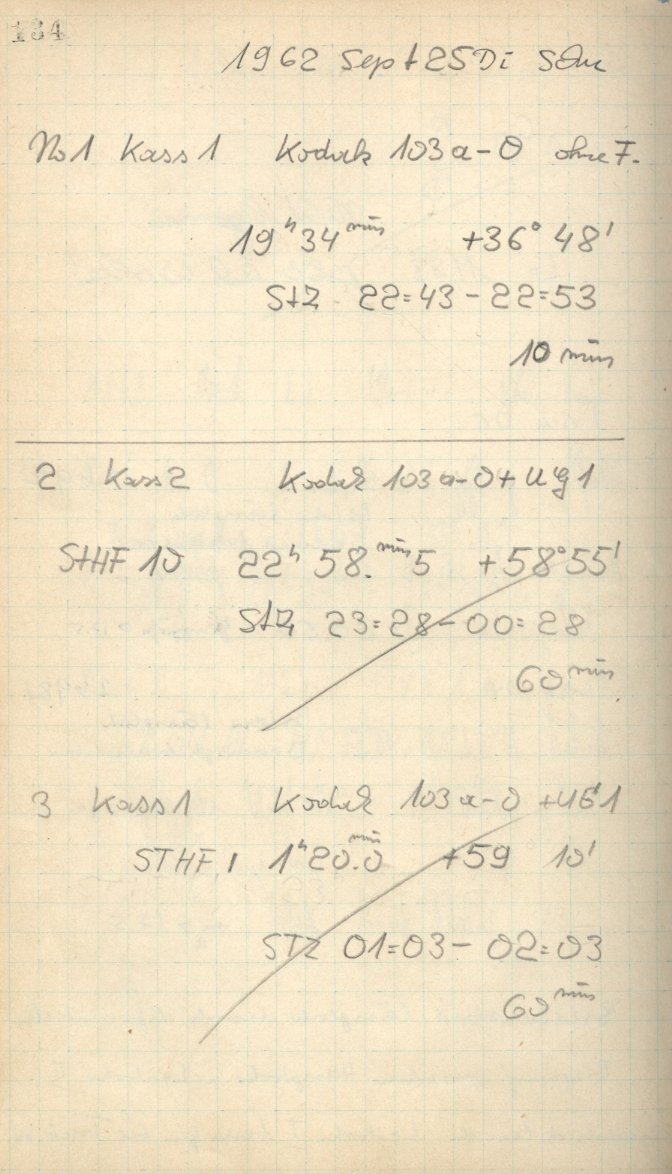 134
1962 Sept 25 Di
No 1 Kass 1 Kodak 103 a-O ohne F.
19ʰ34ᵐⁱⁿ +36° 48'
StZ 22=43 - 22=53
10 min
2 Kass 2 Kodak 103 a-O + UG1
StHF 10 22ʰ 58.ᵐⁱⁿ5 +58°55'
StZ 23=28 - 00=28
60 min
3 Kass 1 Kodak 103 a-O + UG1
STHF 1 1ʰ20.ᵐⁱⁿ0 +59 10'
STZ 01=03 - 02=03
60 min